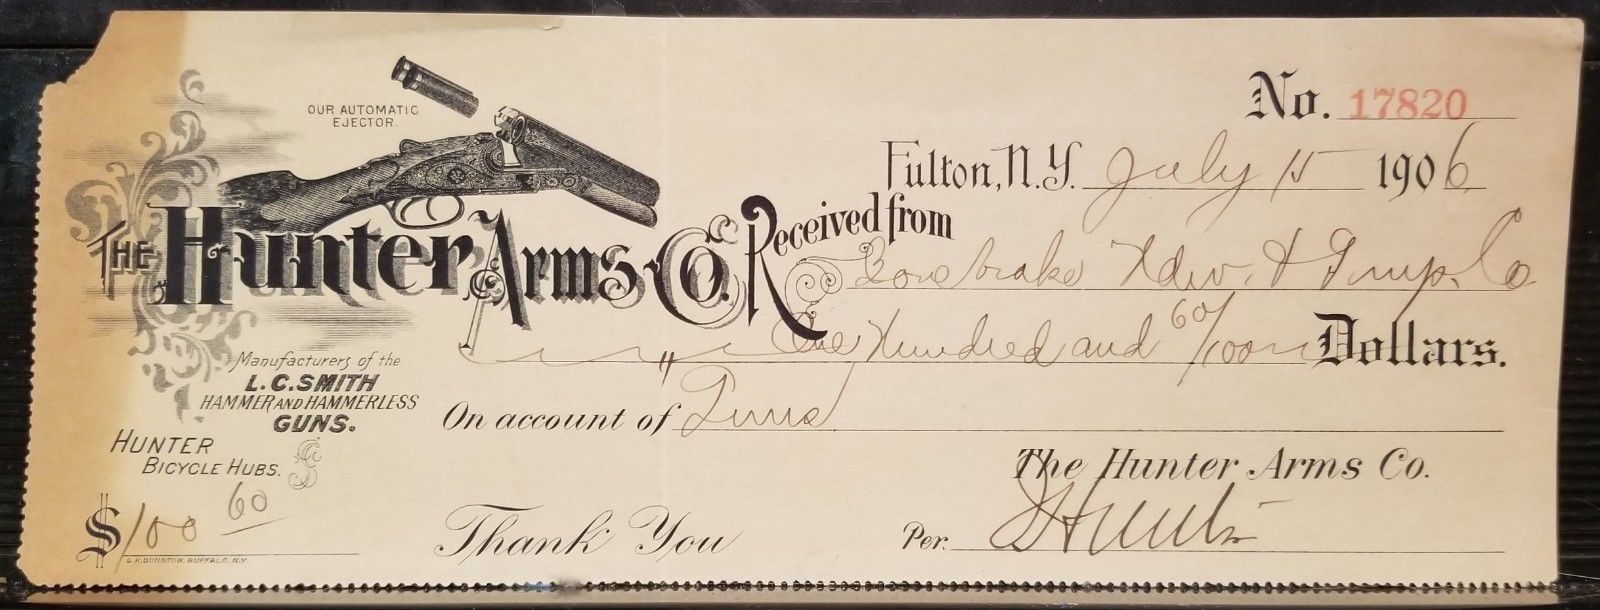 No. 17820
OUR AUTOMATIC
EJECTOR.
Fulton, N.Y. July 15 1906
THE Hunter Arms Co. Received from
Bonebrake Hdw. & Imp. Co
One Hundred and 60/100 Dollars.
Manufacturers of the
L.C. SMITH
HAMMER AND HAMMERLESS
GUNS.
On account of Guns
HUNTER
BICYCLE HUBS.
The Hunter Arms Co.
$100 60
Thank You
Per. Hunter
G.H. DUNSTON, BUFFALO, N.Y.